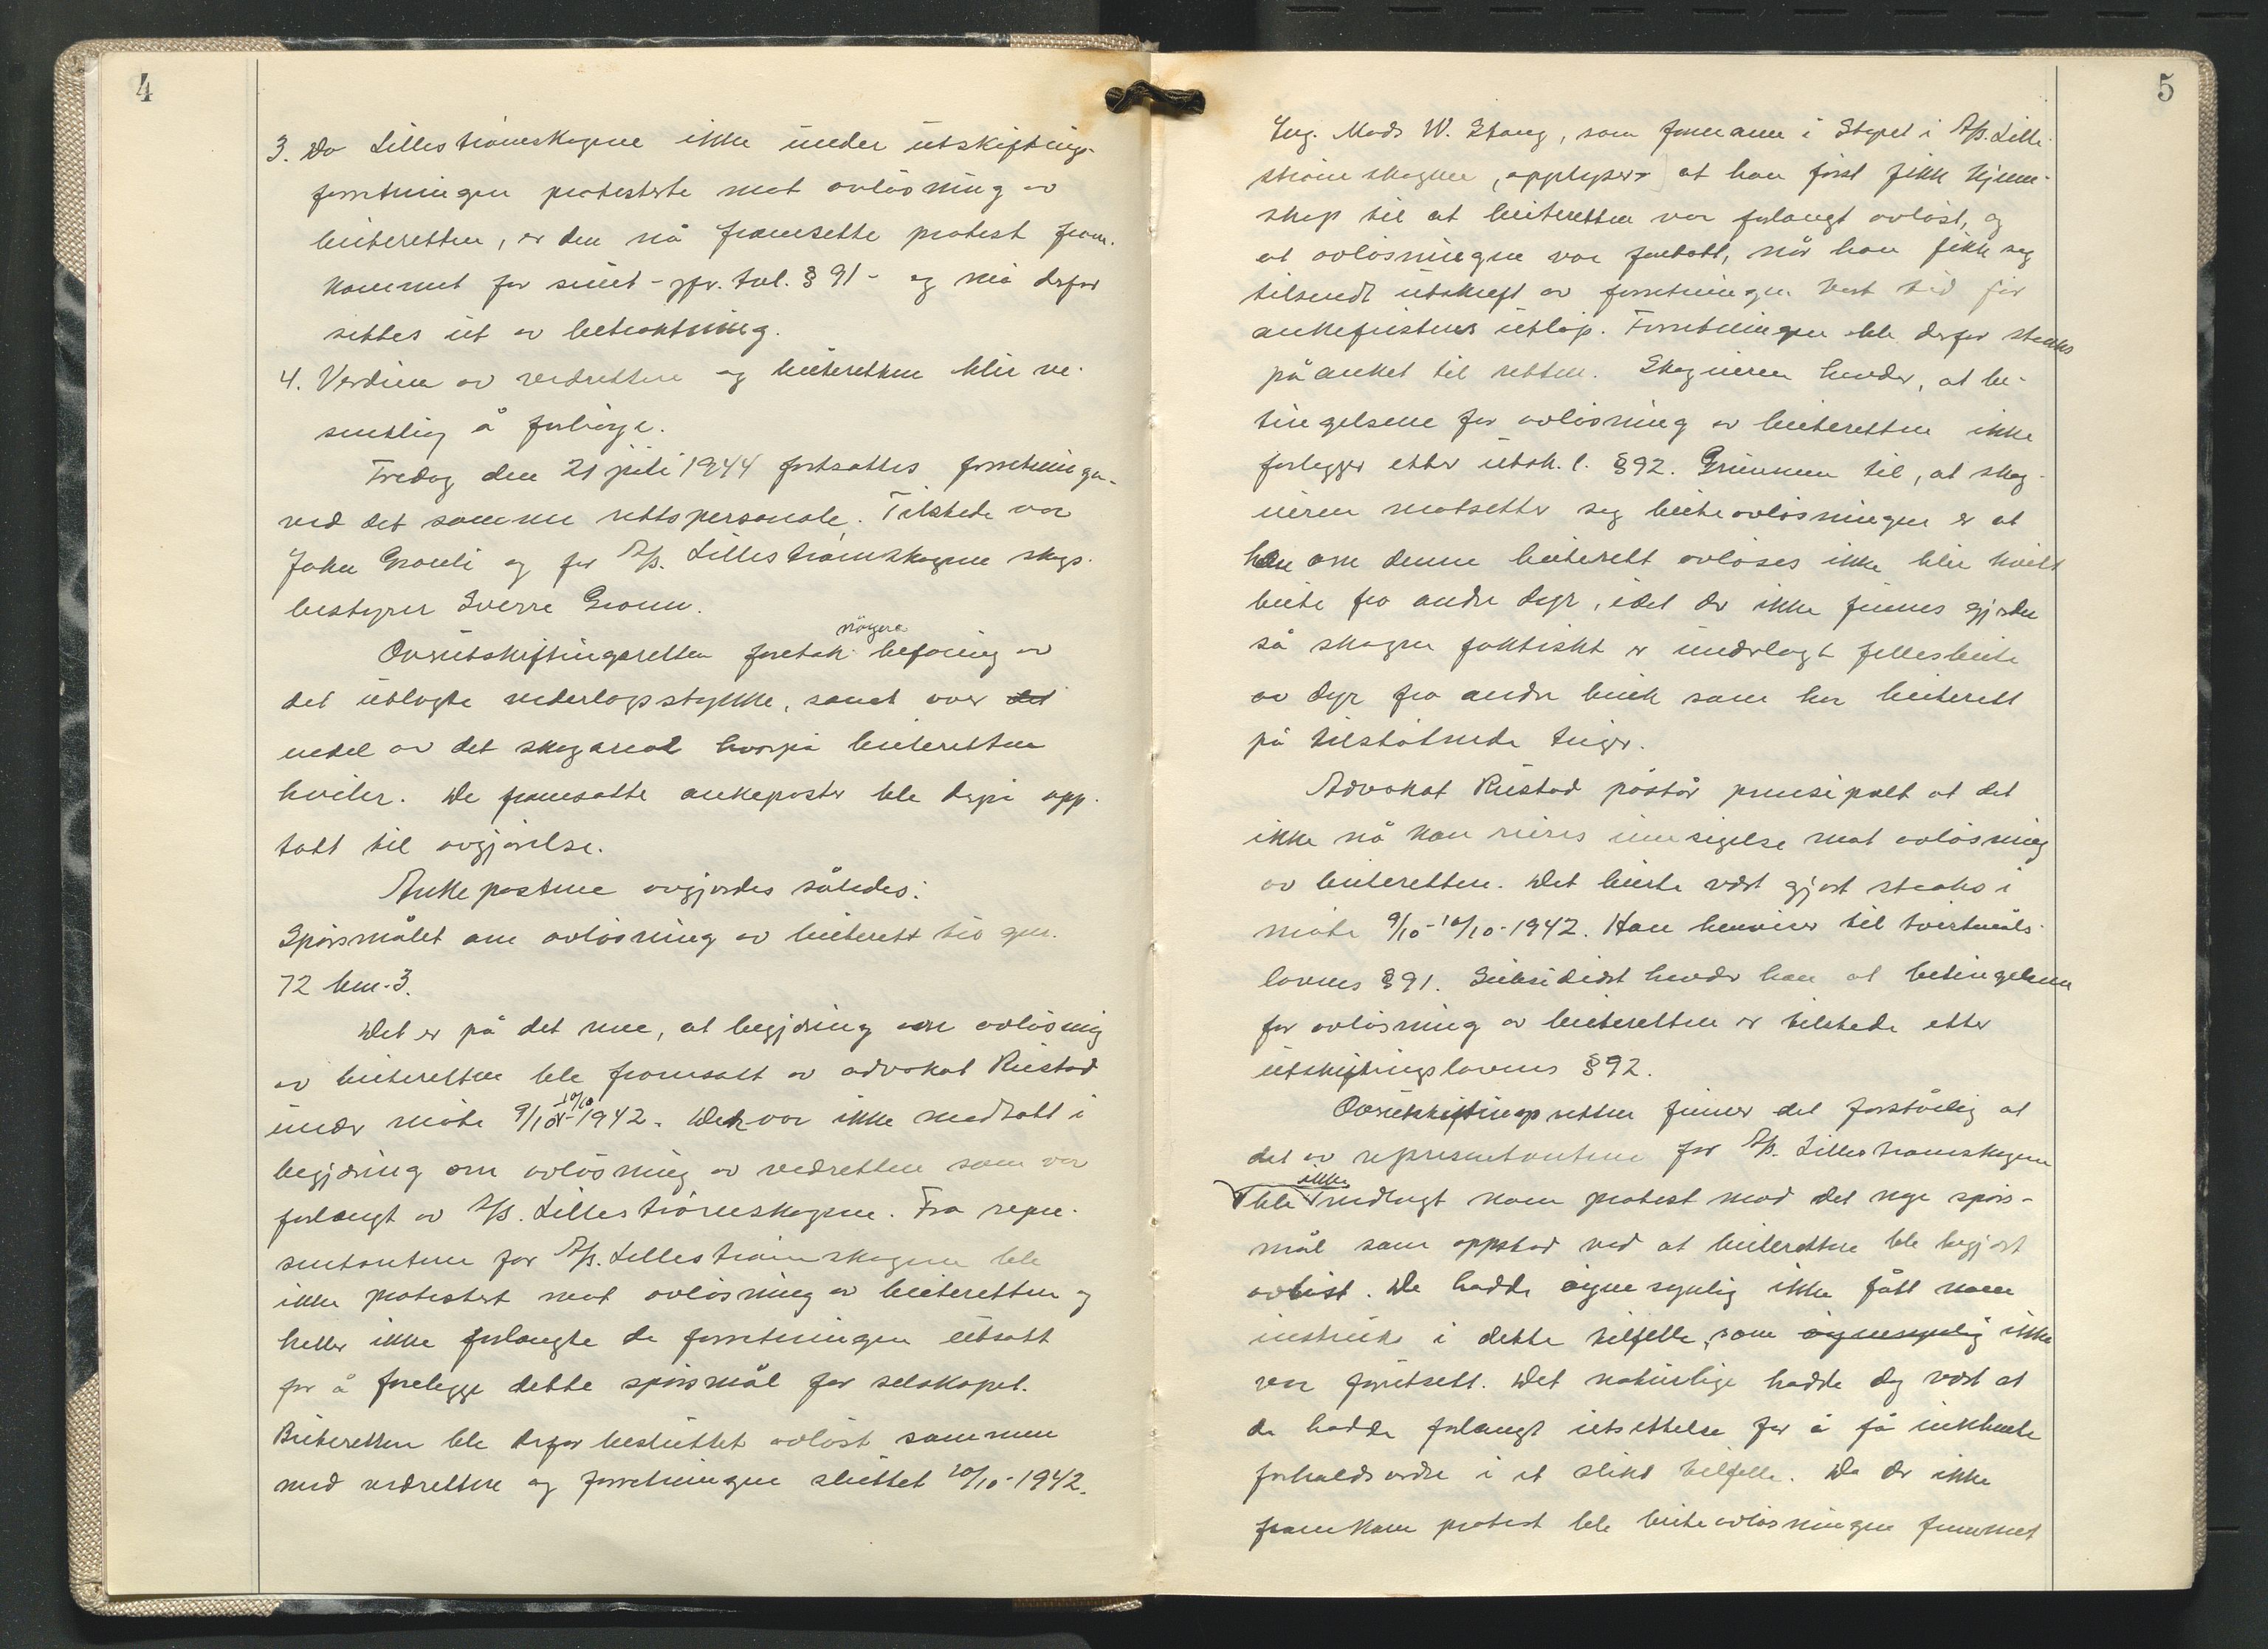 4
3. Da Lillestrømskogene ikke under utskiftings-
forretningen protesterte mot avløsning av
beiteretten, er den nå framsette protest fram-
kommet for seint - jfr. tvl. § 91 - og må derfor
settes ut av betraktning.
4. Verdien av vedretten og beiteretten blir ve-
sentlig å forhøye.
Fredag den 21 juli 1944 fortsattes forretningen
ved det samme rettspersonale. Tilstede var
John Granli og for A/S. Lillestrømskogene skogs-
bestyrer Sverre Grønn.
Overutskiftingsretten foretok nøyere befaring av
det utlagte vederlagsstykke, samt over det
endel av det skogareal hvorpå beiteretten
hviler. De framsatte ankeposter ble derpå opp-
tatt til avgjørelse.
Ankepostene avgjordes således:
Spørsmålet om avløsning av beiterett tis gnr.
72 bnr. 3.
Det er på det rene, at begjæring om avløsning
av beiteretten ble framsatt av advokat Rustad
under møte 9/10 - 10/10 - 1942. Den var ikke medtatt i
begjæring om avløsning av vedretten som var
forlangt av A/S. Lillestrømskogene. Fra repre-
sentantene for A/S. Lillestrømskogene ble
ikke protestert mot avløsning av beiteretten og
heller ikke forlangte de forretningen utsatt
for å forelegge dette spørsmål for selskapet.
Beiteretten ble derfor besluttet avløst sammen
med vedretten og forretningen sluttet 10/10 - 1942.
5
Eng. Mads W. Stang, som formann i Styret i A/S. Lille-
strømskogene, opplyser at han først fikk kjenn-
skap til at beiteretten var forlangt avløst, og
at avløsningen var foretatt, når han fikk seg
tilsendt utskrift av forretningen kort tid før
ankefristens utløp. Forretningen ble derfor straks
påanket til retten. Skogeieren hevder, at be-
tingelsene for avløsning av beiteretten ikke
foreligger etter utsk. l. § 92. Grunnen til, at skog-
eieren motsetter seg beiteavløsningen er at
han om denne beiterett avløses ikke blir kvitt
beite fra andre dyr, idet der ikke finnes gjerder
så skogen faktiskt er underlagt fellesbeite
av dyr fra andre bruk som har beiterett
på tilstøtende teiger.
Advokat Rustad påstår prinsipalt at det
ikke nå kan reises innsigelse mot avløsning
av beiteretten. Det burte vært gjort straks i
møte 9/10 - 10/10 - 1942. Han henviser til tvistemåls-
lovens § 91. Subsidiært hevder han at betingelsene
for avløsning av beiteretten er tilstede etter
utskiftingslovens § 92.
Overutskiftingsretten finner det forståelig at
det av representantene for A/S. Lillestrømskogene
ble ikke nedlagt noen protest mod det nye spørs-
mål som oppstod ved at beiteretten ble begjært
avløst. De hadde øyensynlig ikke fått noen
instruks i dette tilfelle, som øyensynlig ikke
var forutsett. Det naturlige hadde dog vært at
de hadde forlangt utsettelse for å få innhente
forholdsordre i et slikt tilfelle. Da der ikke
framkom protest ble beiteavløsningen fremmet